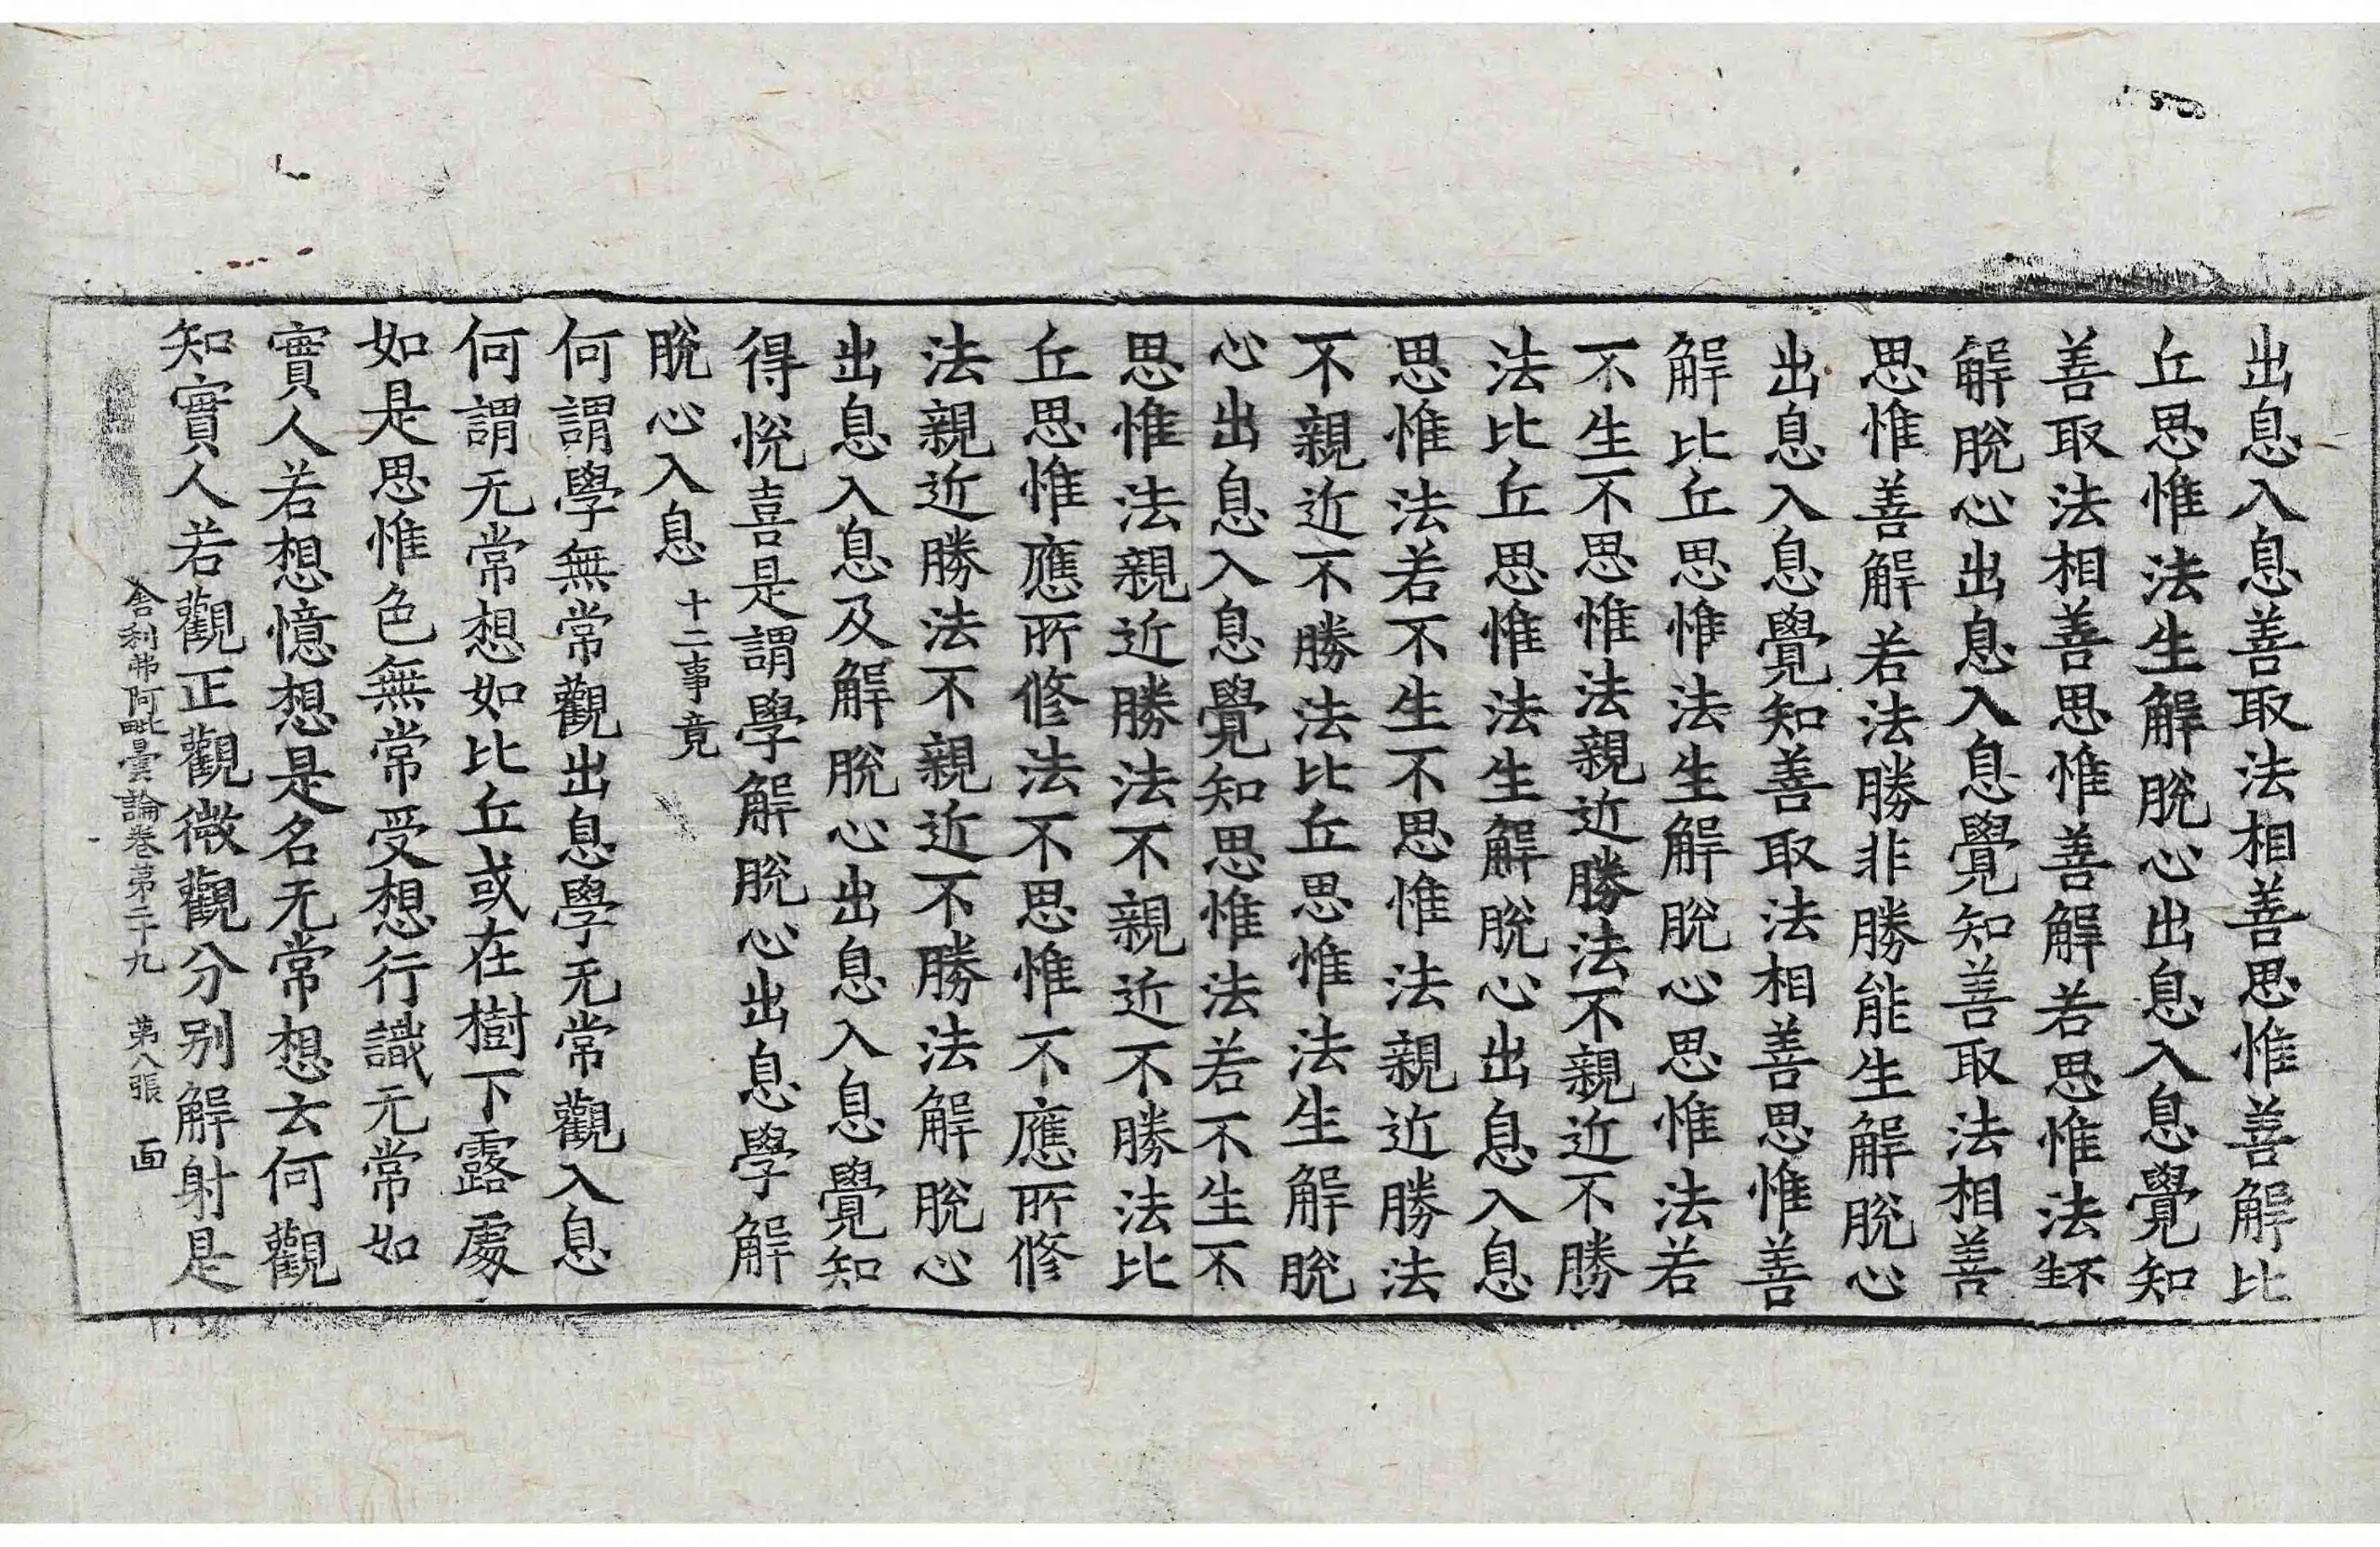 出息入息善取法相善思惟善解比
丘思惟法生解脫心出息入息覺知
善取法相善思惟善解若思惟法生不
解脫心出息入息覺知善取法相善
思惟善解若法勝非勝能生解脫心
出息入息覺知善取法相善思惟善
解比丘思惟法生解脫心思惟法若
不生不思惟法親近勝法不親近不勝
法比丘思惟法生解脫心出息入息
思惟法若不生不思惟法親近勝法
不親近不勝法比丘思惟法生解脫
心出息入息覺知思惟法若不生不
思惟法親近勝法不親近不勝法比
丘思惟應所修法不思惟不應所修
法親近勝法不親近不勝法解脫心
出息入息及解脫心出息入息覺知
得悅喜是謂學解脫心出息學解
脫心入息十二事竟
何謂學無常觀出息學无常觀入息
何謂无常想如比丘或在樹下露處
如是思惟色無常受想行識无常如
實人若想憶想是名无常想云何觀
知實人若觀正觀微觀分別解射是
舍利弗阿毗曇論卷第二十九 第八張 面